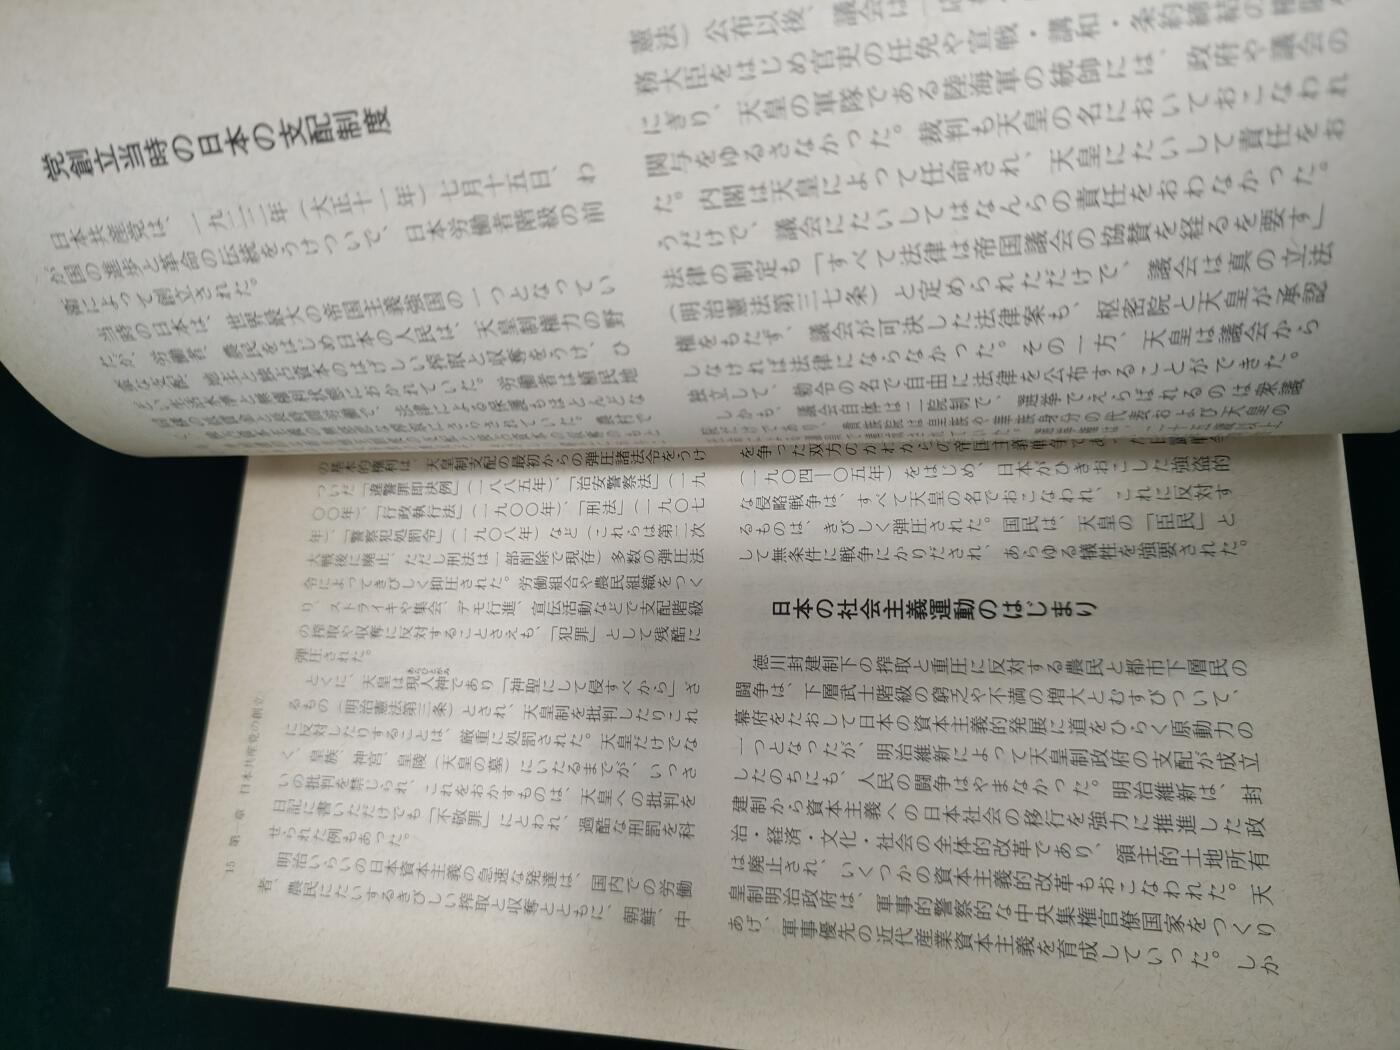 党創立当時の日本の支配制度
日本共産党は、一九二二年（大正十一年）七月十五日、わ
が国の進歩と革命の伝統をうけついで、日本労働者階級の前
衛によって創立された。
当時の日本は、世界最大の帝国主義強国の一つとなってい
たが、労働者、農民をはじめ日本の人民は、天皇制権力の野
蛮な支配、地主と独占資本のはげしい搾取と収奪をうけ、ひ
どい生活水準と無権利状態におかれていた。労働者は植民地
憲法）公布以後、議会は一応
務大臣をはじめ官吏の任免や宣戦・講和・条約締結の権限
にぎり、天皇の軍隊である陸海軍の統帥には、政府や議会の
関与をゆるさなかった。裁判も天皇の名においておこなわれ
た。内閣は天皇によって任命され、天皇にたいして責任をお
うだけで、議会にたいしてはなんらの責任をおわなかった。
法律の制定も「すべて法律は帝国議会の協賛を経るを要す」
（明治憲法第三七条）と定められただけで、議会は真の立法
権をもたず、議会が可決した法律案も、枢密院と天皇が承認
しなければ法律にならなかった。その一方、天皇は議会から
独立して、勅令の名で自由に法律を公布することができた。
しかも、議会自体は二院制で、選挙でえらばれるのは衆議
の基本的権利は、天皇制支配の最初からの弾圧諸法令をうけ
ついだ「違警罪即決例」（一八八五年）、「治安警察法」（一九
〇〇年）、「行政執行法」（一九〇〇年）、「刑法」（一九〇七
年）、「警察犯処罰令」（一九〇八年）など（これらは第二次
大戦後に廃止、ただし刑法は一部削除で現存）多数の弾圧法
令によってきびしく抑圧された。労働組合や農民組織をつく
り、ストライキや集会、デモ行進、宣伝活動などで支配階級
の搾取や収奪に反対することさえも、「犯罪」として残酷に
弾圧された。
とくに、天皇は現人神であり「神聖にして侵すべから」ざ
あらひとがみ
るもの（明治憲法第三条）とされ、天皇制を批判したりこれ
に反対したりすることは、厳重に処罰された。天皇だけでな
く、皇族、神宮、皇陵（天皇の墓）にいたるまでが、いっさ
いの批判を禁じられ、これをおかすものは、天皇への批判を
日記に書いただけでも「不敬罪」にとわれ、過酷な刑罰を科
せられた例もあった。
明治いらいの日本資本主義の急速な発達は、国内での労働
者、農民にたいするきびしい搾取と収奪とともに、朝鮮、中
を争った双方のがわからの帝国主義戦争であった日露戦争
（一九〇四―〇五年）をはじめ、日本がひきおこした強盗的
な侵略戦争は、すべて天皇の名でおこなわれ、これに反対す
るものは、きびしく弾圧された。国民は、天皇の「臣民」と
して無条件に戦争にかりだされ、あらゆる犠牲を強要された。
日本の社会主義運動のはじまり
徳川封建制下の搾取と重圧に反対する農民と都市下層民の
闘争は、下層武士階級の窮乏や不満の増大とむすびついて、
幕府をたおして日本の資本主義的発展に道をひらく原動力の
一つとなったが、明治維新によって天皇制政府の支配が成立
したのちにも、人民の闘争はやまなかった。明治維新は、封
建制から資本主義への日本社会の移行を強力に推進した政
治・経済・文化・社会の全体的改革であり、領主的土地所有
は廃止され、いくつかの資本主義的改革もおこなわれた。天
皇制明治政府は、軍事的警察的な中央集権官僚国家をつくり
あげ、軍事優先の近代産業資本主義を育成していった。しか
15 第一章 日本共産党の創立